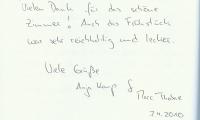 Vielen Dank für das schöne
Zimmer! Auch das Frühstück
war sehr reichhaltig und lecker.
Viele Grüße
Anja Kamp &
Marc Thöne
7.4.2010